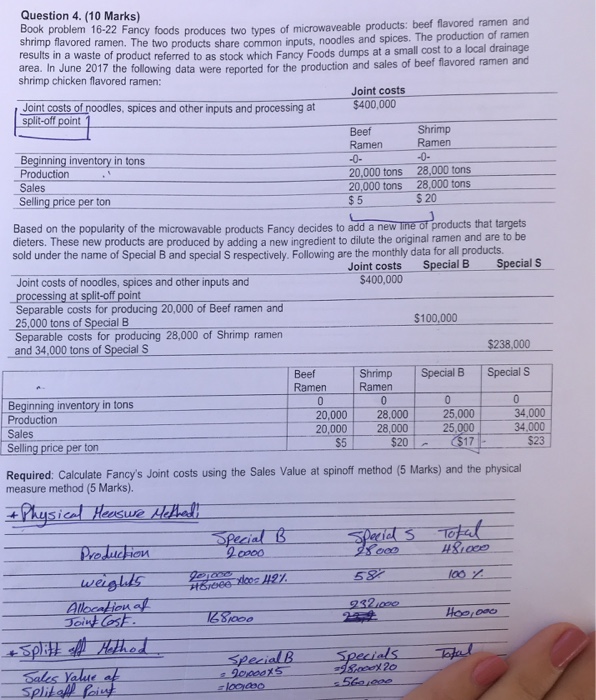 Question 4. (10 Marks)
Book problem 16-22 Fancy foods produces two types of microwaveable products: beef flavored ramen and
shrimp flavored ramen. The two products share common inputs, noodles and spices. The production of ramen
results in a waste of product referred to as stock which Fancy Foods dumps at a small cost to a local drainage
area. In June 2017 the following data were reported for the production and sales of beef flavored ramen and
shrimp chicken flavored ramen:
Joint costs
Joint costs of noodles, spices and other inputs and processing at $400,000
split-off point
Beef Shrimp
Ramen Ramen
Beginning inventory in tons -0- -0-
Production 20,000 tons 28,000 tons
Sales 20,000 tons 28,000 tons
Selling price per ton $ 5 $ 20
Based on the popularity of the microwavable products Fancy decides to add a new line of products that targets
dieters. These new products are produced by adding a new ingredient to dilute the original ramen and are to be
sold under the name of Special B and special S respectively. Following are the monthly data for all products.
Joint costs Special B Special S
Joint costs of noodles, spices and other inputs and $400,000
processing at split-off point
Separable costs for producing 20,000 of Beef ramen and
25,000 tons of Special B $100,000
Separable costs for producing 28,000 of Shrimp ramen
and 34,000 tons of Special S $238,000
Beef Shrimp Special B Special S
Ramen Ramen
Beginning inventory in tons 0 0 0 0
Production 20,000 28,000 25,000 34,000
Sales 20,000 28,000 25,000 34,000
Selling price per ton $5 $20 $17 $23
Required: Calculate Fancy's Joint costs using the Sales Value at spinoff method (5 Marks) and the physical
measure method (5 Marks).
+ Physical Measure Method:
Special B Special S Total
Production 20000 28000 48,000
weights 20,000 48,000 x100= 42% 58% 100 %
Allocation of 232,000
Joint Cost. 168,000 400,000
+ Splitt off Method
Special B Specials Total
Sales Value at = 20,000x5 =28,000x20
Splitoff Point =100,000 =560,000